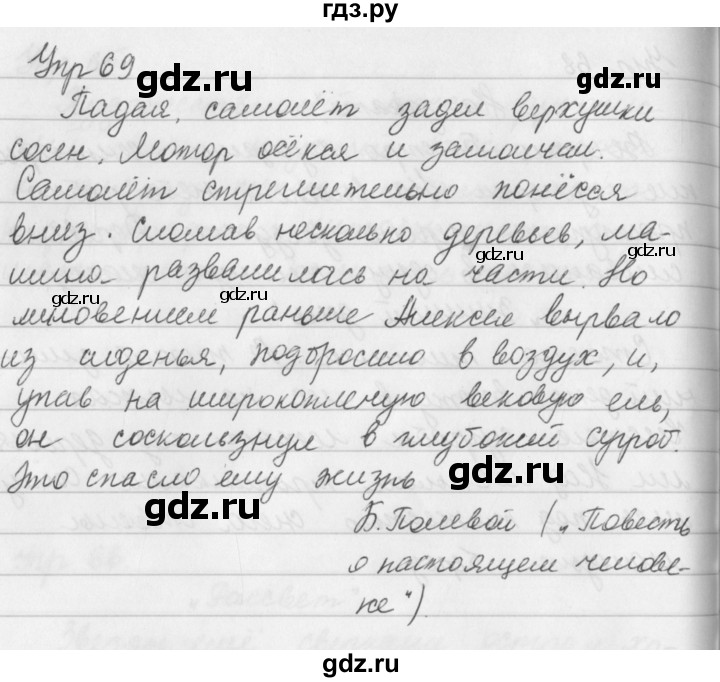 гдз.ру
Упр 69
gdz.ru gdz.ru
Падая, самолёт задел верхушки
сосен, Мотор осёкся и замолчал.
gdz.ru gdz.ru
Самолёт стремительно понёсся
вниз. Сломав несколько деревьев, ма-
gdz.ru
шина развалилась на части. Но
gdz.ru gdz.ru
мгновением раньше Алексея вырвало
gdz.ru
из сиденья, подбросило в воздух, и,
gdz.ru
упав на широкоплечую вековую ель,
он соскользнул в глубокий сугроб.
gdz.ru gdz.ru
Это спасло ему жизнь
gdz.ru gdz.ru
Б. Полевой („Повесть
о настоящем челове-
ке").
gdz.ru